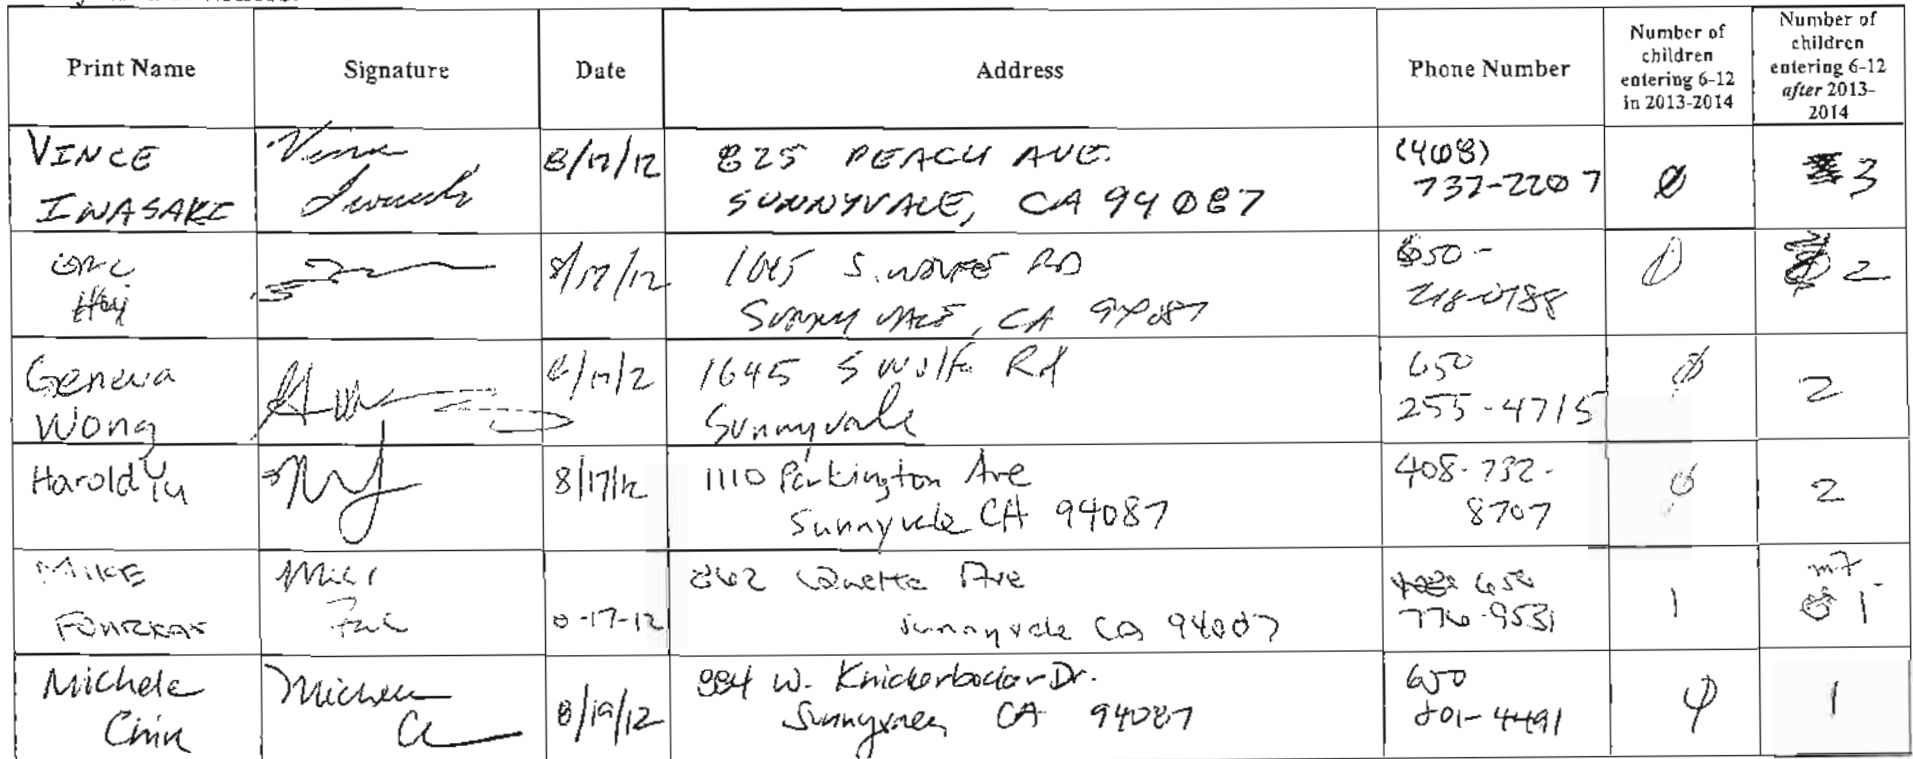 Print Name
Signature
Date
Address
Phone Number
Number of
children
entering 6-12
in 2013-2014
Number of
children
entering 6-12
after 2013-
2014
VINCE
IWASAKI
8/17/12
825 PEACH AVE.
SUNNYVALE, CA 94087
(408)
737-2207
0
3
8/17/12
S. WOLFE RD
SUNNYVALE, CA 94087
650-
218-0788
0
2
Geneva
Wong
1645 S Wolfe Rd
Sunnyvale
650
255-4715
0
2
Harold Yu
8/17/12
1110 Parkington Ave
Sunnyvale CA 94087
408-732-
8707
0
2
MIKE
8-17-12
862 Ave
Sunnyvale CA 94087
650
776-9531
1
1
Michele
Chin
Michele
C
8/19/12
884 W. Knickerbocker Dr.
Sunnyvale, CA 94087
650
801-4491
1